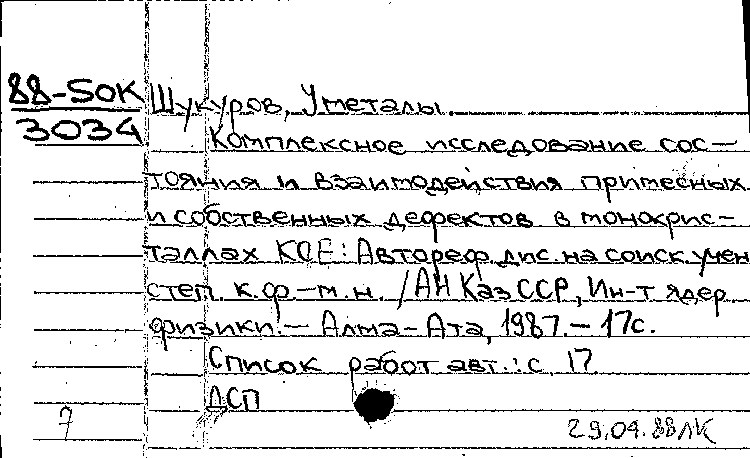 88-5ОК
3034
Шукуров, Уметалы.
Комплексное исследование сос-
тояния и взаимодействия примесных
и собственных дефектов в монокрис-
таллах КСЕ: Автореф. дис. на соиск. учен
степ. к. ф.-м. н. / АН КазССР, Ин-т ядер
физики. - Алма-Ата, 1987. - 17с.
Список работ авт.: с. 17
ДСП
7 29.04.88 ЛК